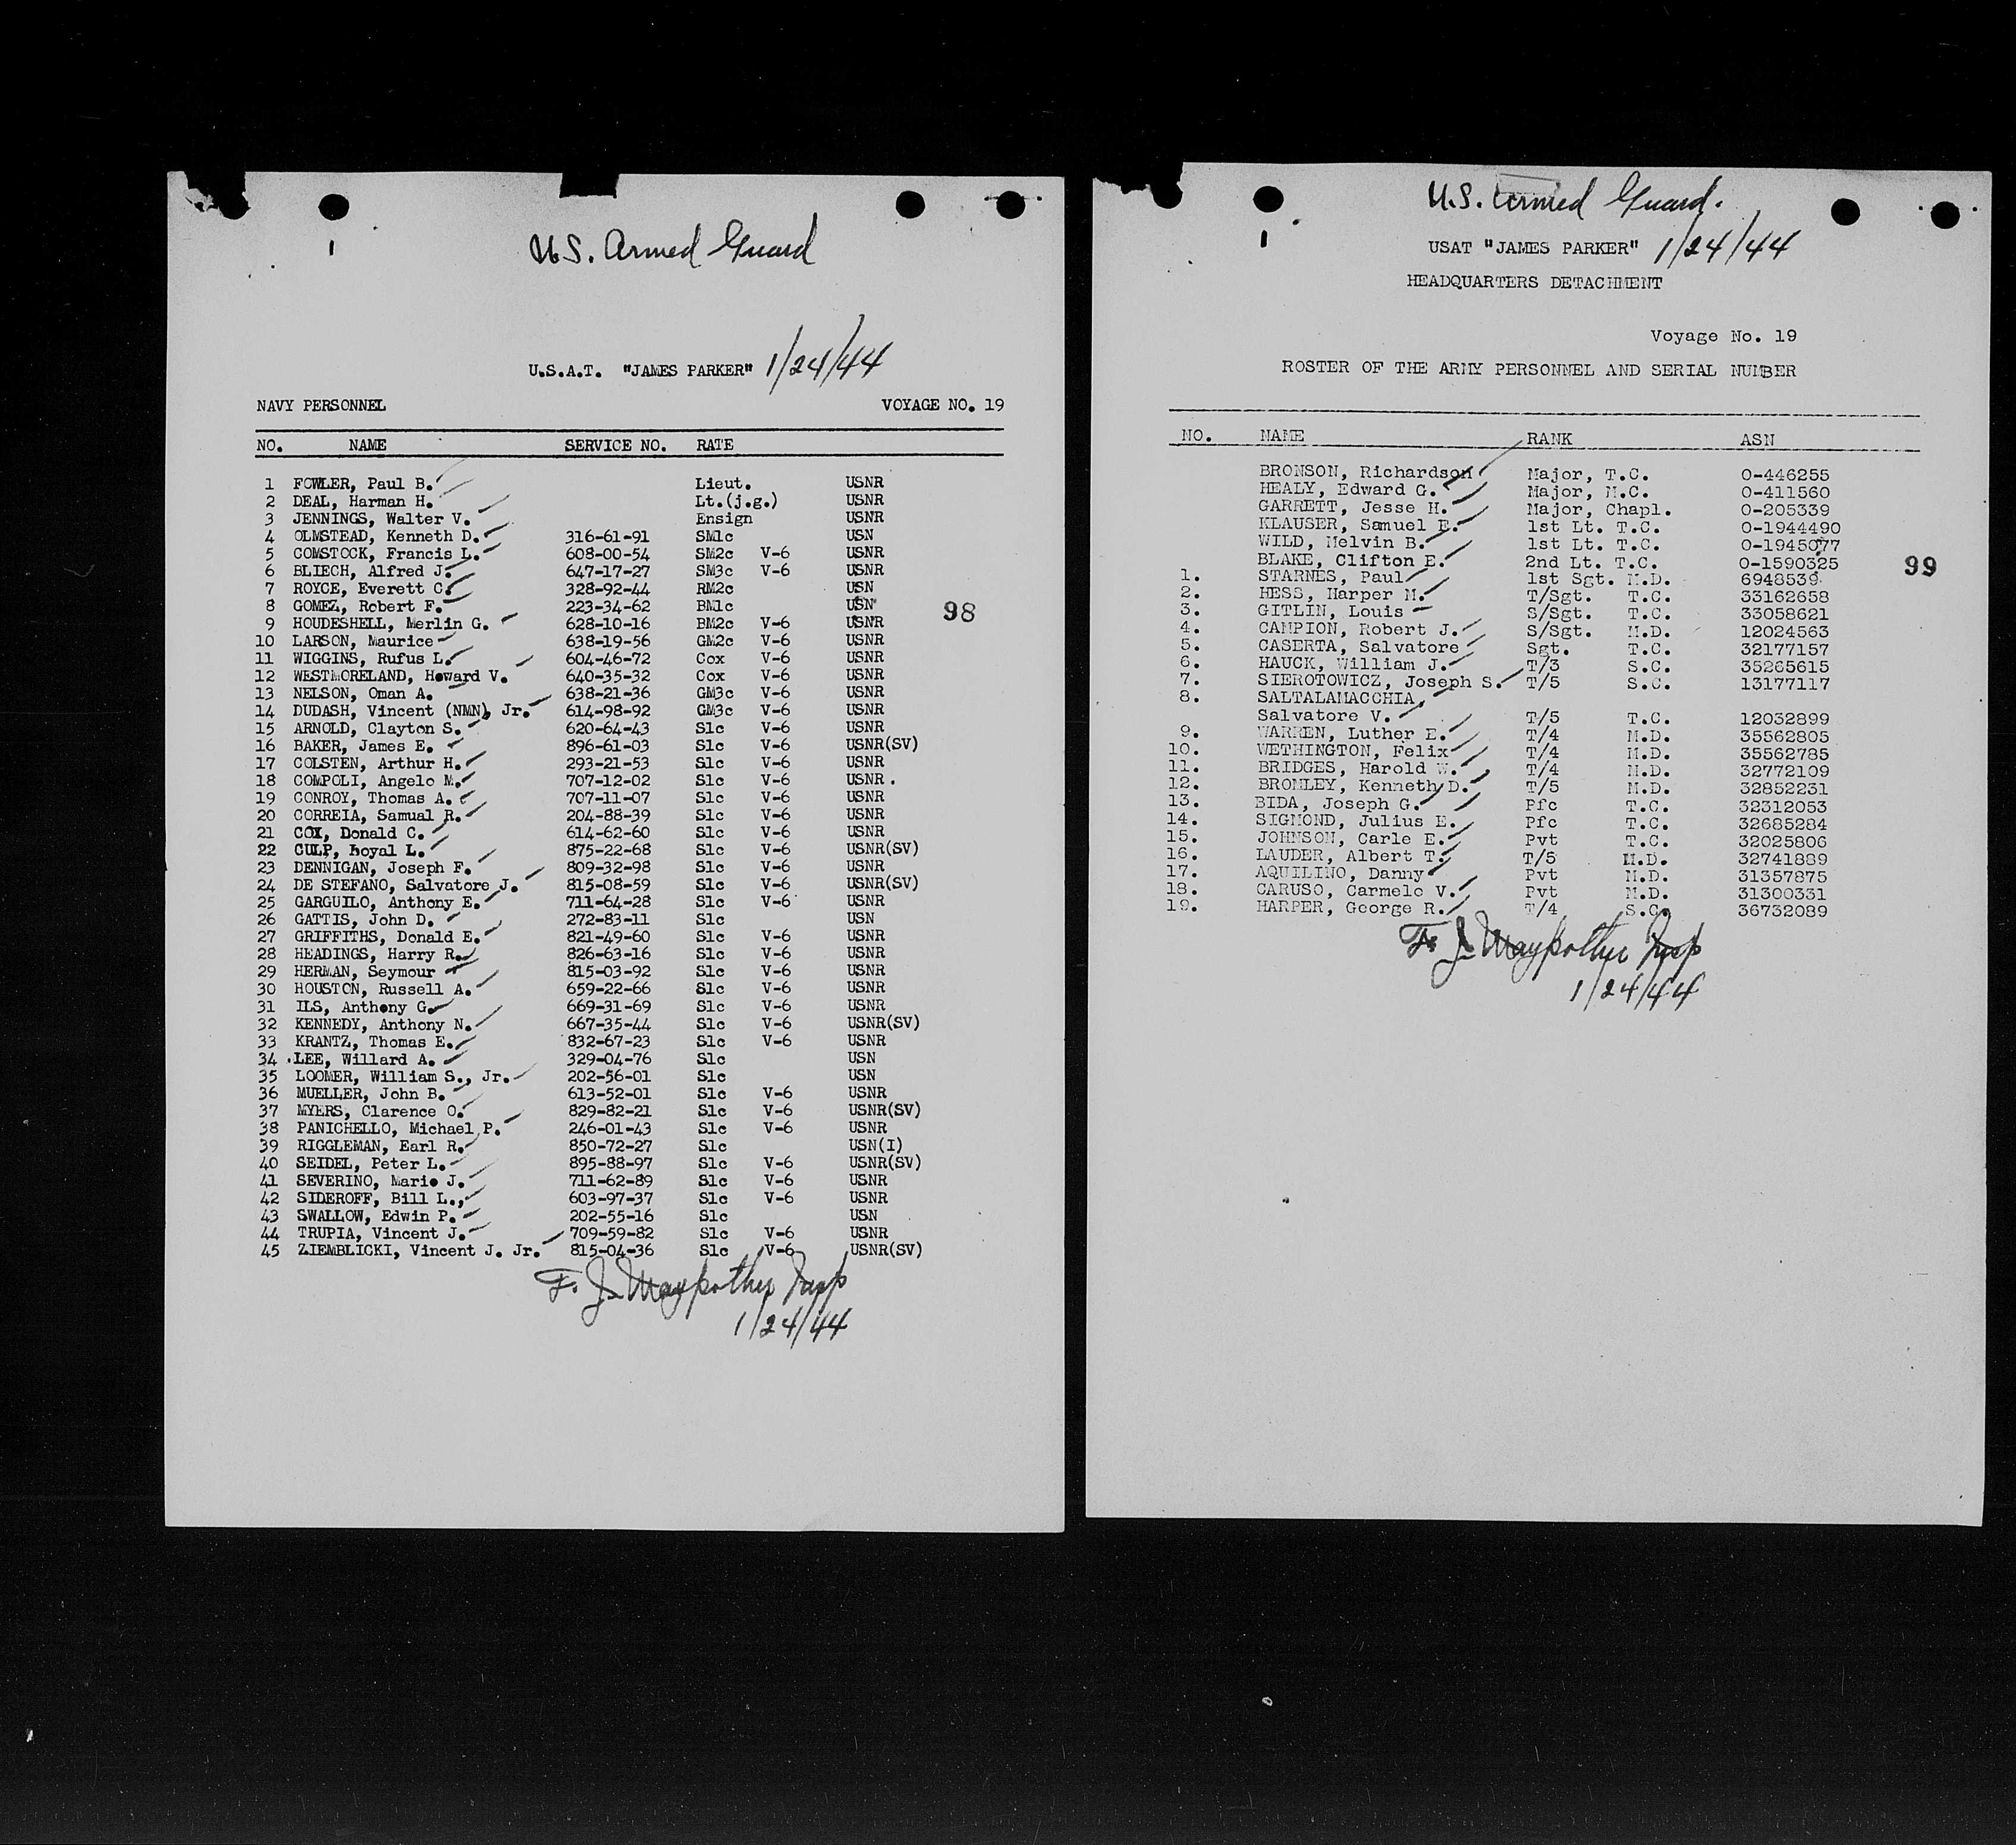 1
U.S. Armed Guard
U.S.A.T. "JAMES PARKER" 1/24/44
NAVY PERSONNEL VOYAGE NO. 19
NO. NAME SERVICE NO. RATE
1 FOWLER, Paul B. Lieut. USNR
2 DEAL, Harman H. Lt.(j.g.) USNR
3 JENNINGS, Walter V. Ensign USNR
4 OLMSTEAD, Kenneth D. 316-61-91 SM1c USN
5 COMSTOCK, Francis L. 608-00-54 SM2c V-6 USNR
6 BLIECH, Alfred J. 647-17-27 SM3c V-6 USNR
7 ROYCE, Everett C. 328-92-44 RM2c USN
8 GOMEZ, Robert F. 223-34-62 BM1c USN
98
9 HOUDESHELL, Merlin G. 628-10-16 BM2c V-6 USNR
10 LARSON, Maurice 638-19-56 GM2c V-6 USNR
11 WIGGINS, Rufus L. 604-46-72 Cox V-6 USNR
12 WESTMORELAND, Howard V. 640-35-32 Cox V-6 USNR
13 NELSON, Oman A. 638-21-36 GM3c V-6 USNR
14 DUDASH, Vincent (NMN), Jr. 614-98-92 GM3c V-6 USNR
15 ARNOLD, Clayton S. 620-64-43 S1c V-6 USNR
16 BAKER, James E. 896-61-03 S1c V-6 USNR(SV)
17 COLSTEN, Arthur H. 293-21-53 S1c V-6 USNR
18 COMPOLI, Angelo M. 707-12-02 S1c V-6 USNR .
19 CONROY, Thomas A. 707-11-07 S1c V-6 USNR
20 CORREIA, Samual R. 204-88-39 S1c V-6 USNR
21 COX, Donald C. 614-62-60 S1c V-6 USNR
22 CULP, Royal L. 875-22-68 S1c V-6 USNR(SV)
23 DENNIGAN, Joseph F. 809-32-98 S1c V-6 USNR
24 DE STEFANO, Salvatore J. 815-08-59 S1c V-6 USNR(SV)
25 GARGUILO, Anthony E. 711-64-28 S1c V-6 USNR
26 GATTIS, John D. 272-83-11 S1c USN
27 GRIFFITHS, Donald E. 821-49-60 S1c V-6 USNR
28 HEADINGS, Harry R. 826-63-16 S1c V-6 USNR
29 HERMAN, Seymour 815-03-92 S1c V-6 USNR
30 HOUSTON, Russell A. 659-22-66 S1c V-6 USNR
31 ILS, Anthony G. 669-31-69 S1c V-6 USNR
32 KENNEDY, Anthony N. 667-35-44 S1c V-6 USNR(SV)
33 KRANTZ, Thomas E. 832-67-23 S1c V-6 USNR
34 LEE, Willard A. 329-04-76 S1c USN
35 LOOMER, William S., Jr. 202-56-01 S1c USN
36 MUELLER, John B. 613-52-01 S1c V-6 USNR
37 MYERS, Clarence O. 829-82-21 S1c V-6 USNR(SV)
38 PANICHELLO, Michael P. 246-01-43 S1c V-6 USNR
39 RIGGLEMAN, Earl R. 850-72-27 S1c USN(I)
40 SEIDEL, Peter L. 895-88-97 S1c V-6 USNR(SV)
41 SEVERINO, Mario J. 711-62-89 S1c V-6 USNR
42 SIDEROFF, Bill L., 603-97-37 S1c V-6 USNR
43 SWALLOW, Edwin P. 202-55-16 S1c USN
44 TRUPIA, Vincent J. 709-59-82 S1c V-6 USNR
45 ZIEMBLICKI, Vincent J. Jr. 815-04-36 S1c V-6 USNR(SV)
F. J. Maypother Insp
1/24/44
1
U.S. Armed Guard.
USAT "JAMES PARKER" 1/24/44
HEADQUARTERS DETACHMENT
Voyage No. 19
ROSTER OF THE ARMY PERSONNEL AND SERIAL NUMBER
NO. NAME RANK ASN
BRONSON, Richardson Major, T.C. 0-446255
HEALY, Edward G. Major, M.C. 0-411560
GARRETT, Jesse H. Major, Chapl. 0-205339
KLAUSER, Samuel E. 1st Lt. T.C. 0-1944490
WILD, Melvin B. 1st Lt. T.C. 0-1945077
BLAKE, Clifton E. 2nd Lt. T.C. 0-1590325
99
1. STARNES, Paul 1st Sgt. M.D. 6948539
2. HESS, Harper M. T/Sgt. T.C. 33162658
3. GITLIN, Louis S/Sgt. T.C. 33058621
4. CAMPION, Robert J. S/Sgt. M.D. 12024563
5. CASERTA, Salvatore Sgt. T.C. 32177157
6. HAUCK, William J. T/3 S.C. 35265615
7. SIEROTOWICZ, Joseph S. T/5 S.C. 13177117
8. SALTALAMACCHIA,
Salvatore V. T/5 T.C. 12032899
9. WARREN, Luther E. T/4 M.D. 35562805
10. WETHINGTON, Felix T/4 M.D. 35562785
11. BRIDGES, Harold W. T/4 M.D. 32772109
12. BROMLEY, Kenneth D. T/5 M.D. 32852231
13. BIDA, Joseph G. Pfc T.C. 32312053
14. SIGMOND, Julius E. Pfc T.C. 32685284
15. JOHNSON, Carle E. Pvt T.C. 32025806
16. LAUDER, Albert T. T/5 M.D. 32741889
17. AQUILINO, Danny Pvt M.D. 31357875
18. CARUSO, Carmelo V. Pvt M.D. 31300331
19. HARPER, George R. T/4 S.C. 36732089
F. J. Maypother Insp
1/24/44